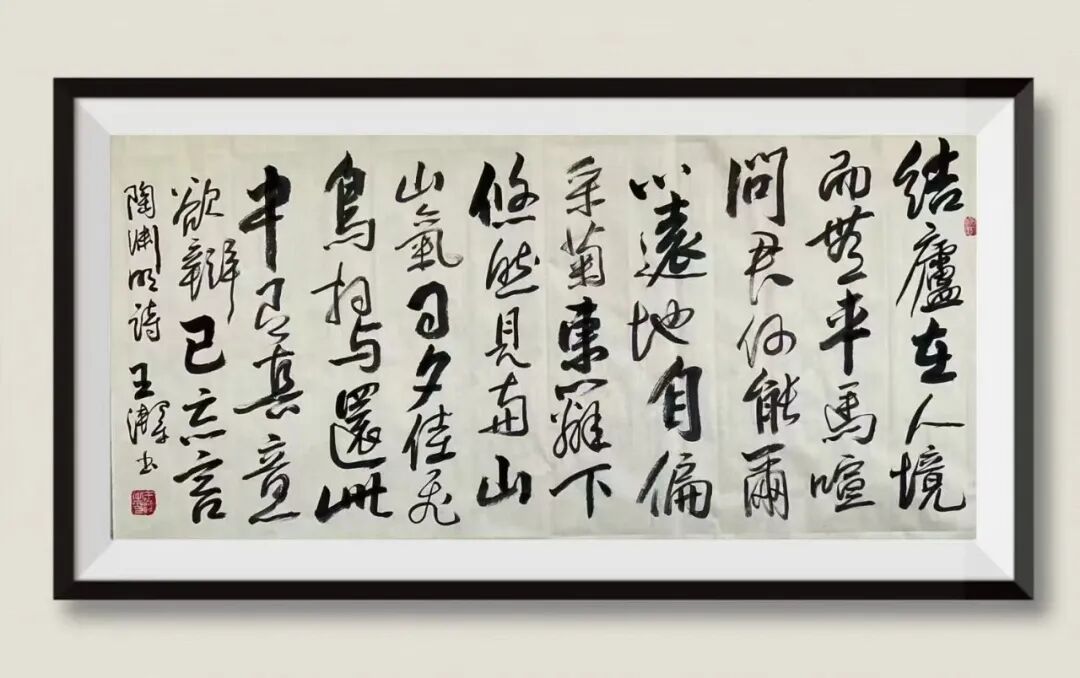 結廬在人境
而無車馬喧
問君何能爾
心遠地自偏
采菊東籬下
悠然見南山
山氣日夕佳飛
鳥相与還此
中有真意
欲辯已忘言
陶淵明詩 王 书